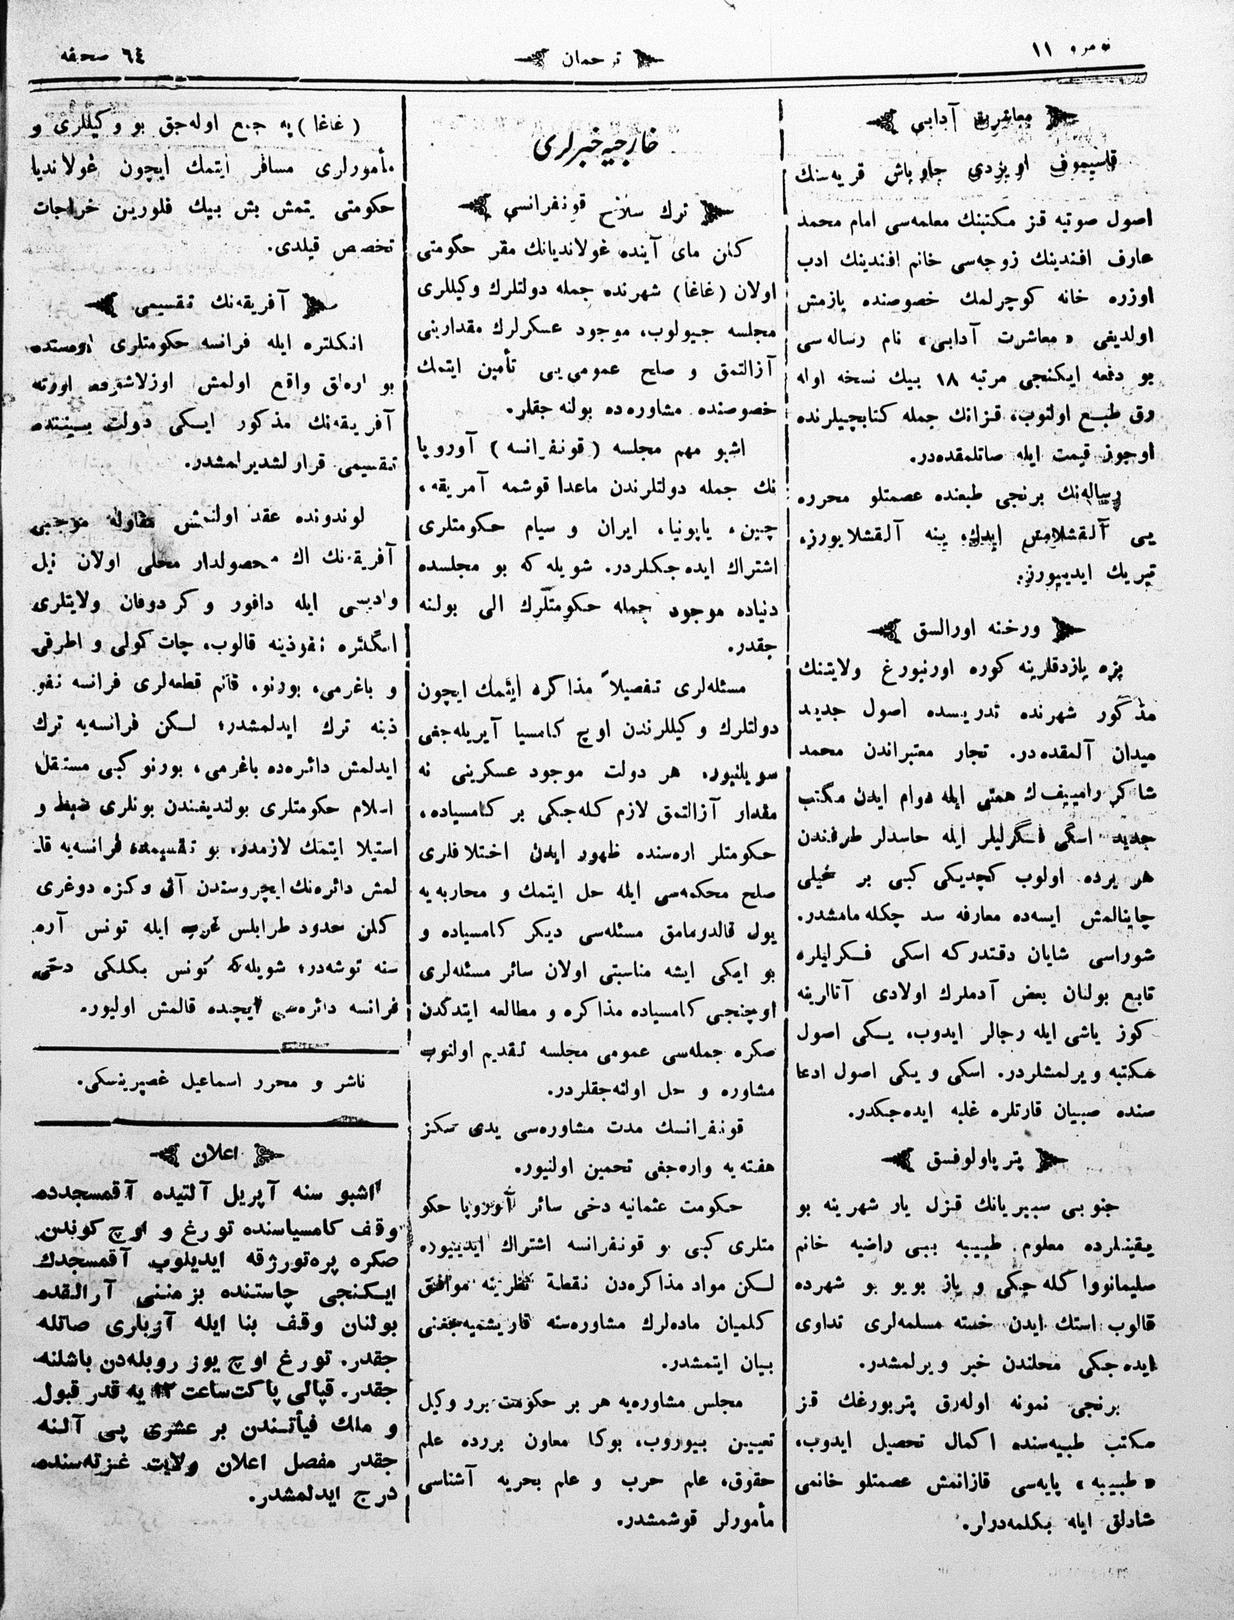 نومرو ١١
ترجمان
٦٤ صحفه
معاشرت آدابی
قاسیموف اویزدی جاوباش قریه‌سنك
اصول صوتیه قز مكتبنك معلمه‌سی امام محمد
عارف افندینك زوجه‌سی خانم افندینك ادب
اوزره خانه كوچرلمك خصوصنده یازمش
اولدیغی «معاشرت آدابی» نام رساله‌سی
بو دفعه ایكنجی مرتبه ١٨ بیك نسخه اوله
رق طبع اولنوب، قزانك جمله كتابچیلرنده
اوجوز قیمت ایله صاتلمقده‌در.
رساله‌نك برنجی طبعنده عصمتلو محرره
یی آلقشلامش ایدك، ینه آلقشلایورز،
تبریك ایدییورز.
ورخنه اورالسق
بزه یازدقلرینه كوره اورنبورغ ولایتنك
مذكور شهرنده تدریسده اصول جدید
میدان آلمقده‌در. تجار معتبراندن محمد
شاكر رامییف‌ك همتی ایله دوام ایدن مكتب
جدید اسكی فكرلیلر ایله حاسدلر طرفندن
هر یرده اولوب كچدیكی كبی بر خیلی
چاینالمش ایسه‌ده معارفه سد چكله‌مامشدر.
شوراسی شایان دقتدركه اسكی فكرلیلره
تابع بولنان بعض آدملرك اولادی آتالرینه
كوز یاشی ایله رجالر ایدوب، یكی اصول
مكتبه ویرلمشلردر. اسكی و یكی اصول ادعا
سنده صبیان قارتلره غلبه ایده‌جكدر.
پتر پاولوفسق
جنوبی سبیریانك قزل یار شهرینه بو
یقینلرده معلوم طبیبه بیبی راضیه خانم
سلیمانووا كله‌جكی و یاز بویو بو شهرده
قالوب استك ایدن خسته مسلمه‌لری تداوی
ایده‌جكی محلندن خبر ویرلمشدر.
برنجی نمونه اوله‌رق پتربورغك قز
مكتب طبیه‌سنده اكمال تحصیل ایدوب،
«طبیبه» پایه‌سی قازانمش عصمتلو خانمی
شادلق ایله بكلمه‌درلر.
خارجیه خبرلری
ترك سلاح قونفرانسی
كلن مای آینده غولاندیانك مقر حكومتی
اولان (غاغا) شهرنده جمله دولتلرك وكیللری
مجلسه جیولوب، موجود عسكرلرك مقدارینی
آزالتمق و صلح عمومی‌یی تأمین ایتمك
خصوصنده مشاوره‌ده بولنه جقلر.
اشبو مهم مجلسه (قونفرانسه) آوروپا
نك جمله دولتلرندن ماعدا قوشمه آمریقه،
چین، یاپونیا، ایران و سیام حكومتلری
اشتراك ایده‌جكلردر. شویله‌كه بو مجلسده
دنیاده موجود جمله حكومتلرك الی بولنه
جقدر.
مسئله‌لری تفصیلاً مذاكره ایتمك ایچون
دولتلرك وكیللرندن اوچ كامسیا آیریله‌جغی
سویلنیور. هر دولت موجود عسكرینی نه
مقدار آزالتمق لازم كله‌جكی بر كامسیاده،
حكومتلر اره‌سنده ظهور ایدن اختلافلری
صلح محكمه‌سی ایله حل ایتمك و محاربه‌یه
یول قالدرمامق مسئله‌سی دیكر كامسیاده و
بو ایكی ایشه مناسبتی اولان سائر مسئله‌لری
اوچنجی كامسیاده مذاكره و مطالعه ایتدكدن
صكره جمله‌سی عمومی مجلسه تقدیم اولنوب
مشاوره و حل اولنه‌جقلردر.
قونفرانسك مدت مشاوره‌سی یدی سكز
هفته‌یه واره‌جغی تخمین اولنیور.
حكومت عثمانیه دخی سائر آوروپا حكو
متلری كبی بو قونفرانسه اشتراك ایدییوره
لكن مواد مذاكره‌دن نقطهٔ نظرینه موافق
كلمیان ماده‌لرك مشاوره‌سنه قاریشمیه‌جغنی
بیان ایتمشدر.
مجلس مشاوره‌یه هر بر حكومت برر وكیل
تعیین بیوروب، بوكا معاون بررده علم
حقوق، علم حرب و علم بحریه آشناسی
مأمورلر قوشمشدر.
(غاغا) یه جمع اوله‌جق بو وكیللری و
مأمورلری مسافر ایتمك ایچون غولاندیا
حكومتی یتمش بش بیك فلورین خراجات
تخصص قیلدی.
آفریقه‌نك تقسیمی
انكلتره ایله فرانسه حكومتلری اره‌سنده
بو ارەلق واقع اولمش اوزلاشوقه اورته
آفریقه‌نك مذكور ایكی دولت بیننده
تقسیمی قرارلشدیرلمشدر.
لوندونده عقد اولنمش مقاوله موجبی
آفریقه‌نك اك محصولدار محلی اولان نیل
وادیسی ایله دافور و كردوفان ولایتلری
انكلتره نفوذینه قالوب، چات كولی و اطرفی
و باغرمی، بورنو، قانم قطعه‌لری فرانسه نفو
ذینه ترك ایدلمشدر؛ لكن فرانسه‌یه ترك
ایدلمش دائره‌ده باغرمی، بورنو كبی مستقل
اسلام حكومتلری بولندیغندن بونلری ضبط و
استیلا ایتمك لازمدر. بو تقسیمده فرانسه‌یه قا
لمش دائره‌نك ایچروسندن آق دكزه دوغری
كلن حدود طرابلس غرب ایله تونس آره
سنه توشه‌در؛ شویله‌كه تونس بكلكی دخی
فرانسه دائره‌سی ایچده قالمش اولیور.
ناشر و محرر اسماعیل غصپرینسكی.
اعلان
اشبو سنه آپریل آلتیده آقمسجدده
وقف كامسیاسنده تورغ و اوچ كوندن
صكره پره‌تورژقه ایدیلوب آقمسجدك
ایكنجی چاستنده بزمننی آرالقده
بولنان وقف بنا ایله آزباری صاتله
جقدر. تورغ اوچ یوز روبله‌دن باشلنه
جقدر. قپالی پاكت ساعت ١٢ یه قدر قبول
و ملك فیأتندن بر عشری پی آلنه
جقدر مفصل اعلان ولایت غزته‌سنده
درج ایدلمشدر.